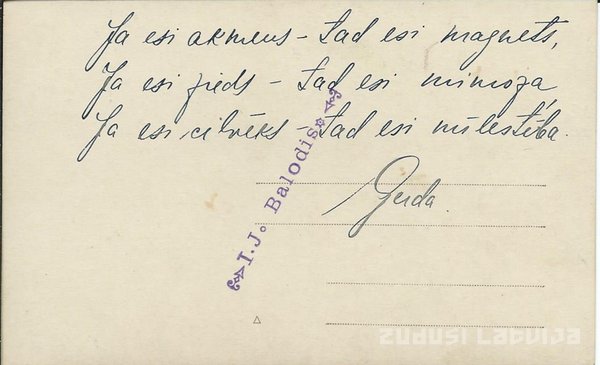 Ja esi akmens – tad esi magnets,
Ja esi zieds – tad esi mimoza,
Ja esi cilvēks – tad esi mīlestība.
Gerda.
I. J. Balodis
zudusi Latvija